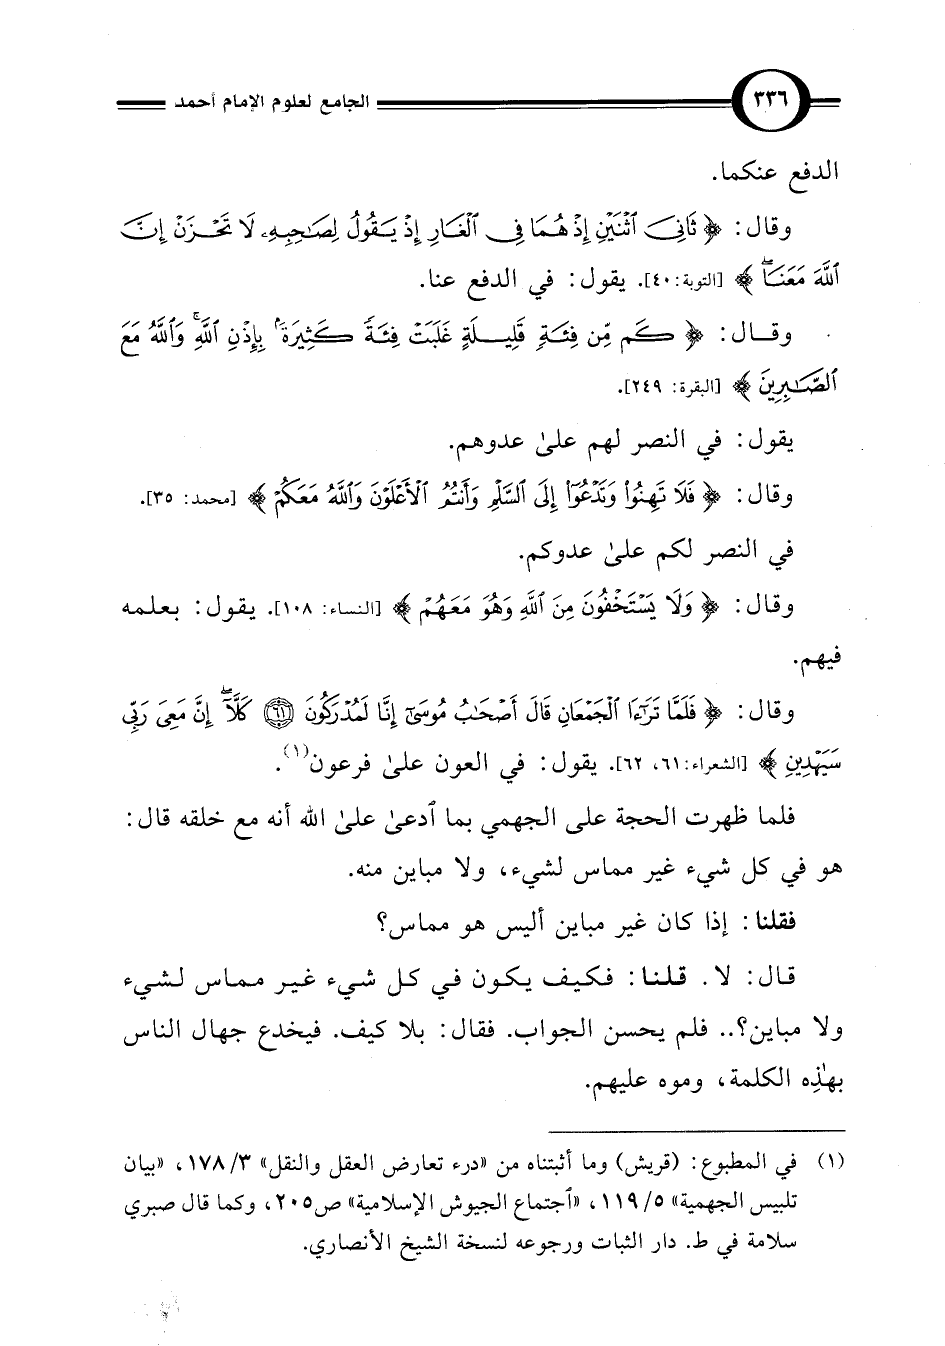 ٣٣٦
الجامع لعلوم الإمام أحمد
الدفع عنكما.
وقال: ﴿ ثَانِيَ ٱثْنَيْنِ إِذْ هُمَا فِي ٱلْغَارِ إِذْ يَقُولُ لِصَاحِبِهِ لَا تَحْزَنْ إِنَّ
ٱللَّهَ مَعَنَا ﴾ [التوبة: ٤٠]. يقول: في الدفع عنا.
وقال: ﴿ كَم مِّن فِئَةٍ قَلِيلَةٍ غَلَبَتْ فِئَةً كَثِيرَةً بِإِذْنِ ٱللَّهِ وَٱللَّهُ مَعَ
ٱلصَّابِرِينَ ﴾ [البقرة: ٢٤٩].
يقول: في النصر لهم علىٰ عدوهم.
وقال: ﴿ فَلَا تَهِنُوا۟ وَتَدْعُوٓا۟ إِلَى ٱلسَّلْمِ وَأَنتُمُ ٱلْأَعْلَوْنَ وَٱللَّهُ مَعَكُمْ ﴾ [محمد: ٣٥].
في النصر لكم علىٰ عدوكم.
وقال: ﴿ وَلَا يَسْتَخْفُونَ مِنَ ٱللَّهِ وَهُوَ مَعَهُمْ ﴾ [النساء: ١٠٨]. يقول: بعلمه
فيهم.
وقال: ﴿ فَلَمَّا تَرَٰٓءَا ٱلْجَمْعَانِ قَالَ أَصْحَٰبُ مُوسَىٰٓ إِنَّا لَمُدْرَكُونَ ٦١ كَلَّآ إِنَّ مَعِىَ رَبِّى
سَيَهْدِينِ ﴾ [الشعراء: ٦١، ٦٢]. يقول: في العون علىٰ فرعون(١).
فلما ظهرت الحجة على الجهمي بما ٱدعىٰ علىٰ الله أنه مع خلقه قال:
هو في كل شيء غير مماس لشيء، ولا مباين منه.
فقلنا: إذا كان غير مباين أليس هو مماس؟
قال: لا. قلنا: فكيف يكون في كل شيء غير مماس لشيء
ولا مباين؟.. فلم يحسن الجواب. فقال: بلا كيف. فيخدع جهال الناس
بهٰذِه الكلمة، وموه عليهم.
(١) في المطبوع: (قريش) وما أثبتناه من «درء تعارض العقل والنقل» ٣/ ١٧٨، «بيان
تلبيس الجهمية» ٥/ ١١٩، «ٱجتماع الجيوش الإسلامية» ص٢٠٥، وكما قال صبري
سلامة في ط. دار الثبات ورجوعه لنسخة الشيخ الأنصاري.